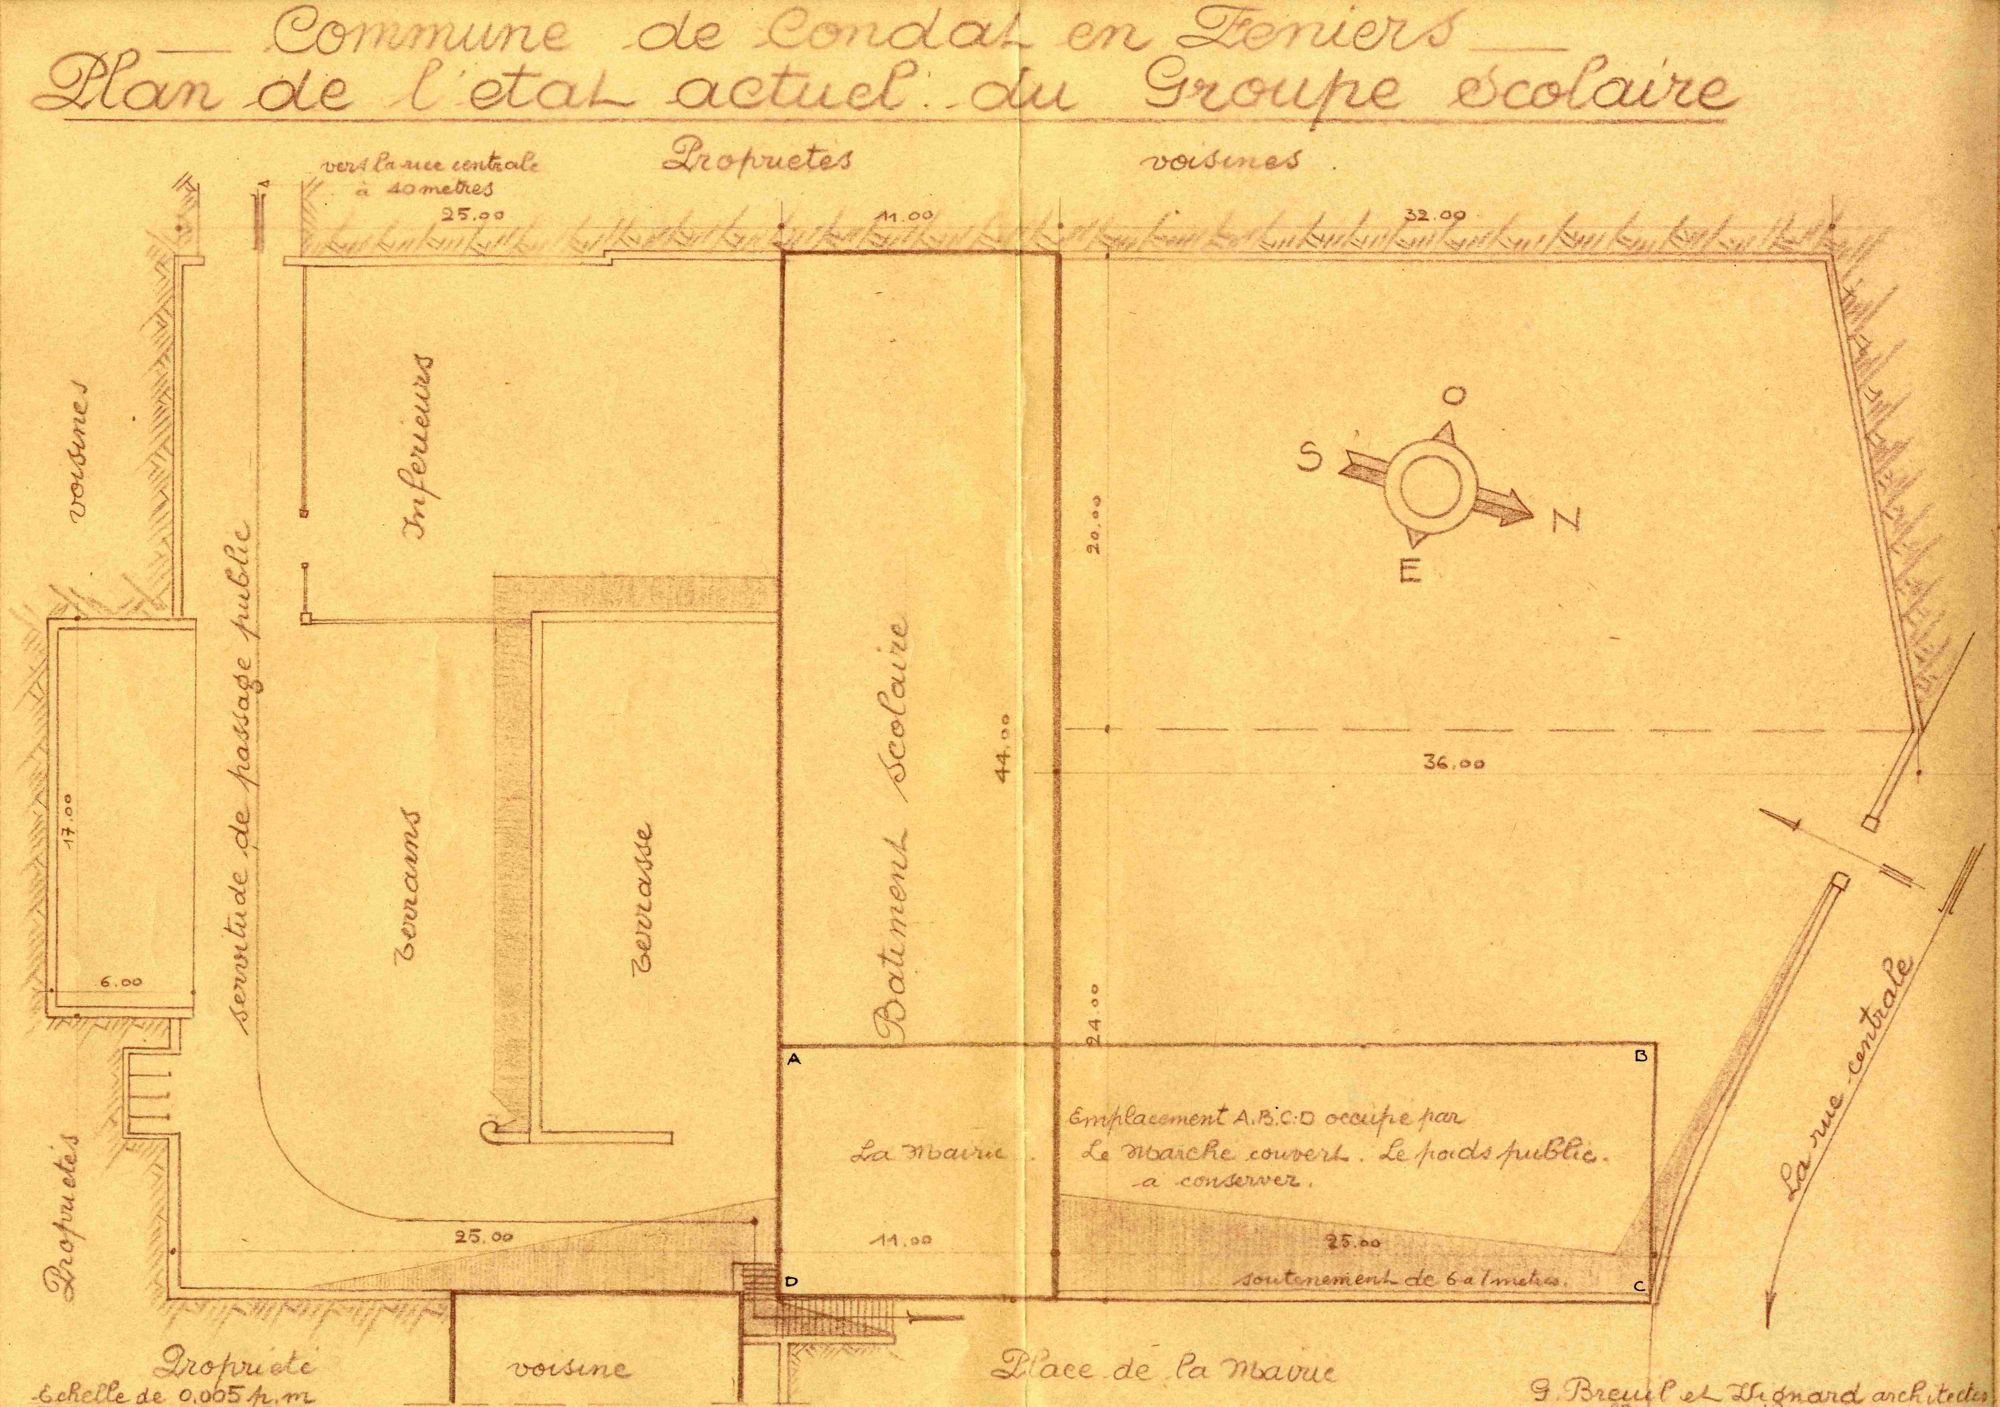 Commune de Condat en Feniers
Plan de l'etat actuel du Groupe Scolaire
vers la rue centrale
à 40 metres
Proprietés
voisines.
25.00
11.00
32.00
voisines
Inferieurs
servitude de passage public
S
O
N
E
20.00
17.00
6.00
terrains
terrasse
Batiment scolaire
44.00
36.00
24.00
A
B
Emplacement A.B.C.D occupé par
Le Marché couvert. Le poids public.
a conserver.
La Mairie.
La rue centrale
Proprietés
25.00
11.00
25.00
soutenement de 6 a 7 metres.
D
C
Propriété
voisine
Place de la Mairie
Echelle de 0,005 p.m
G. Breuil et Vignard architectes